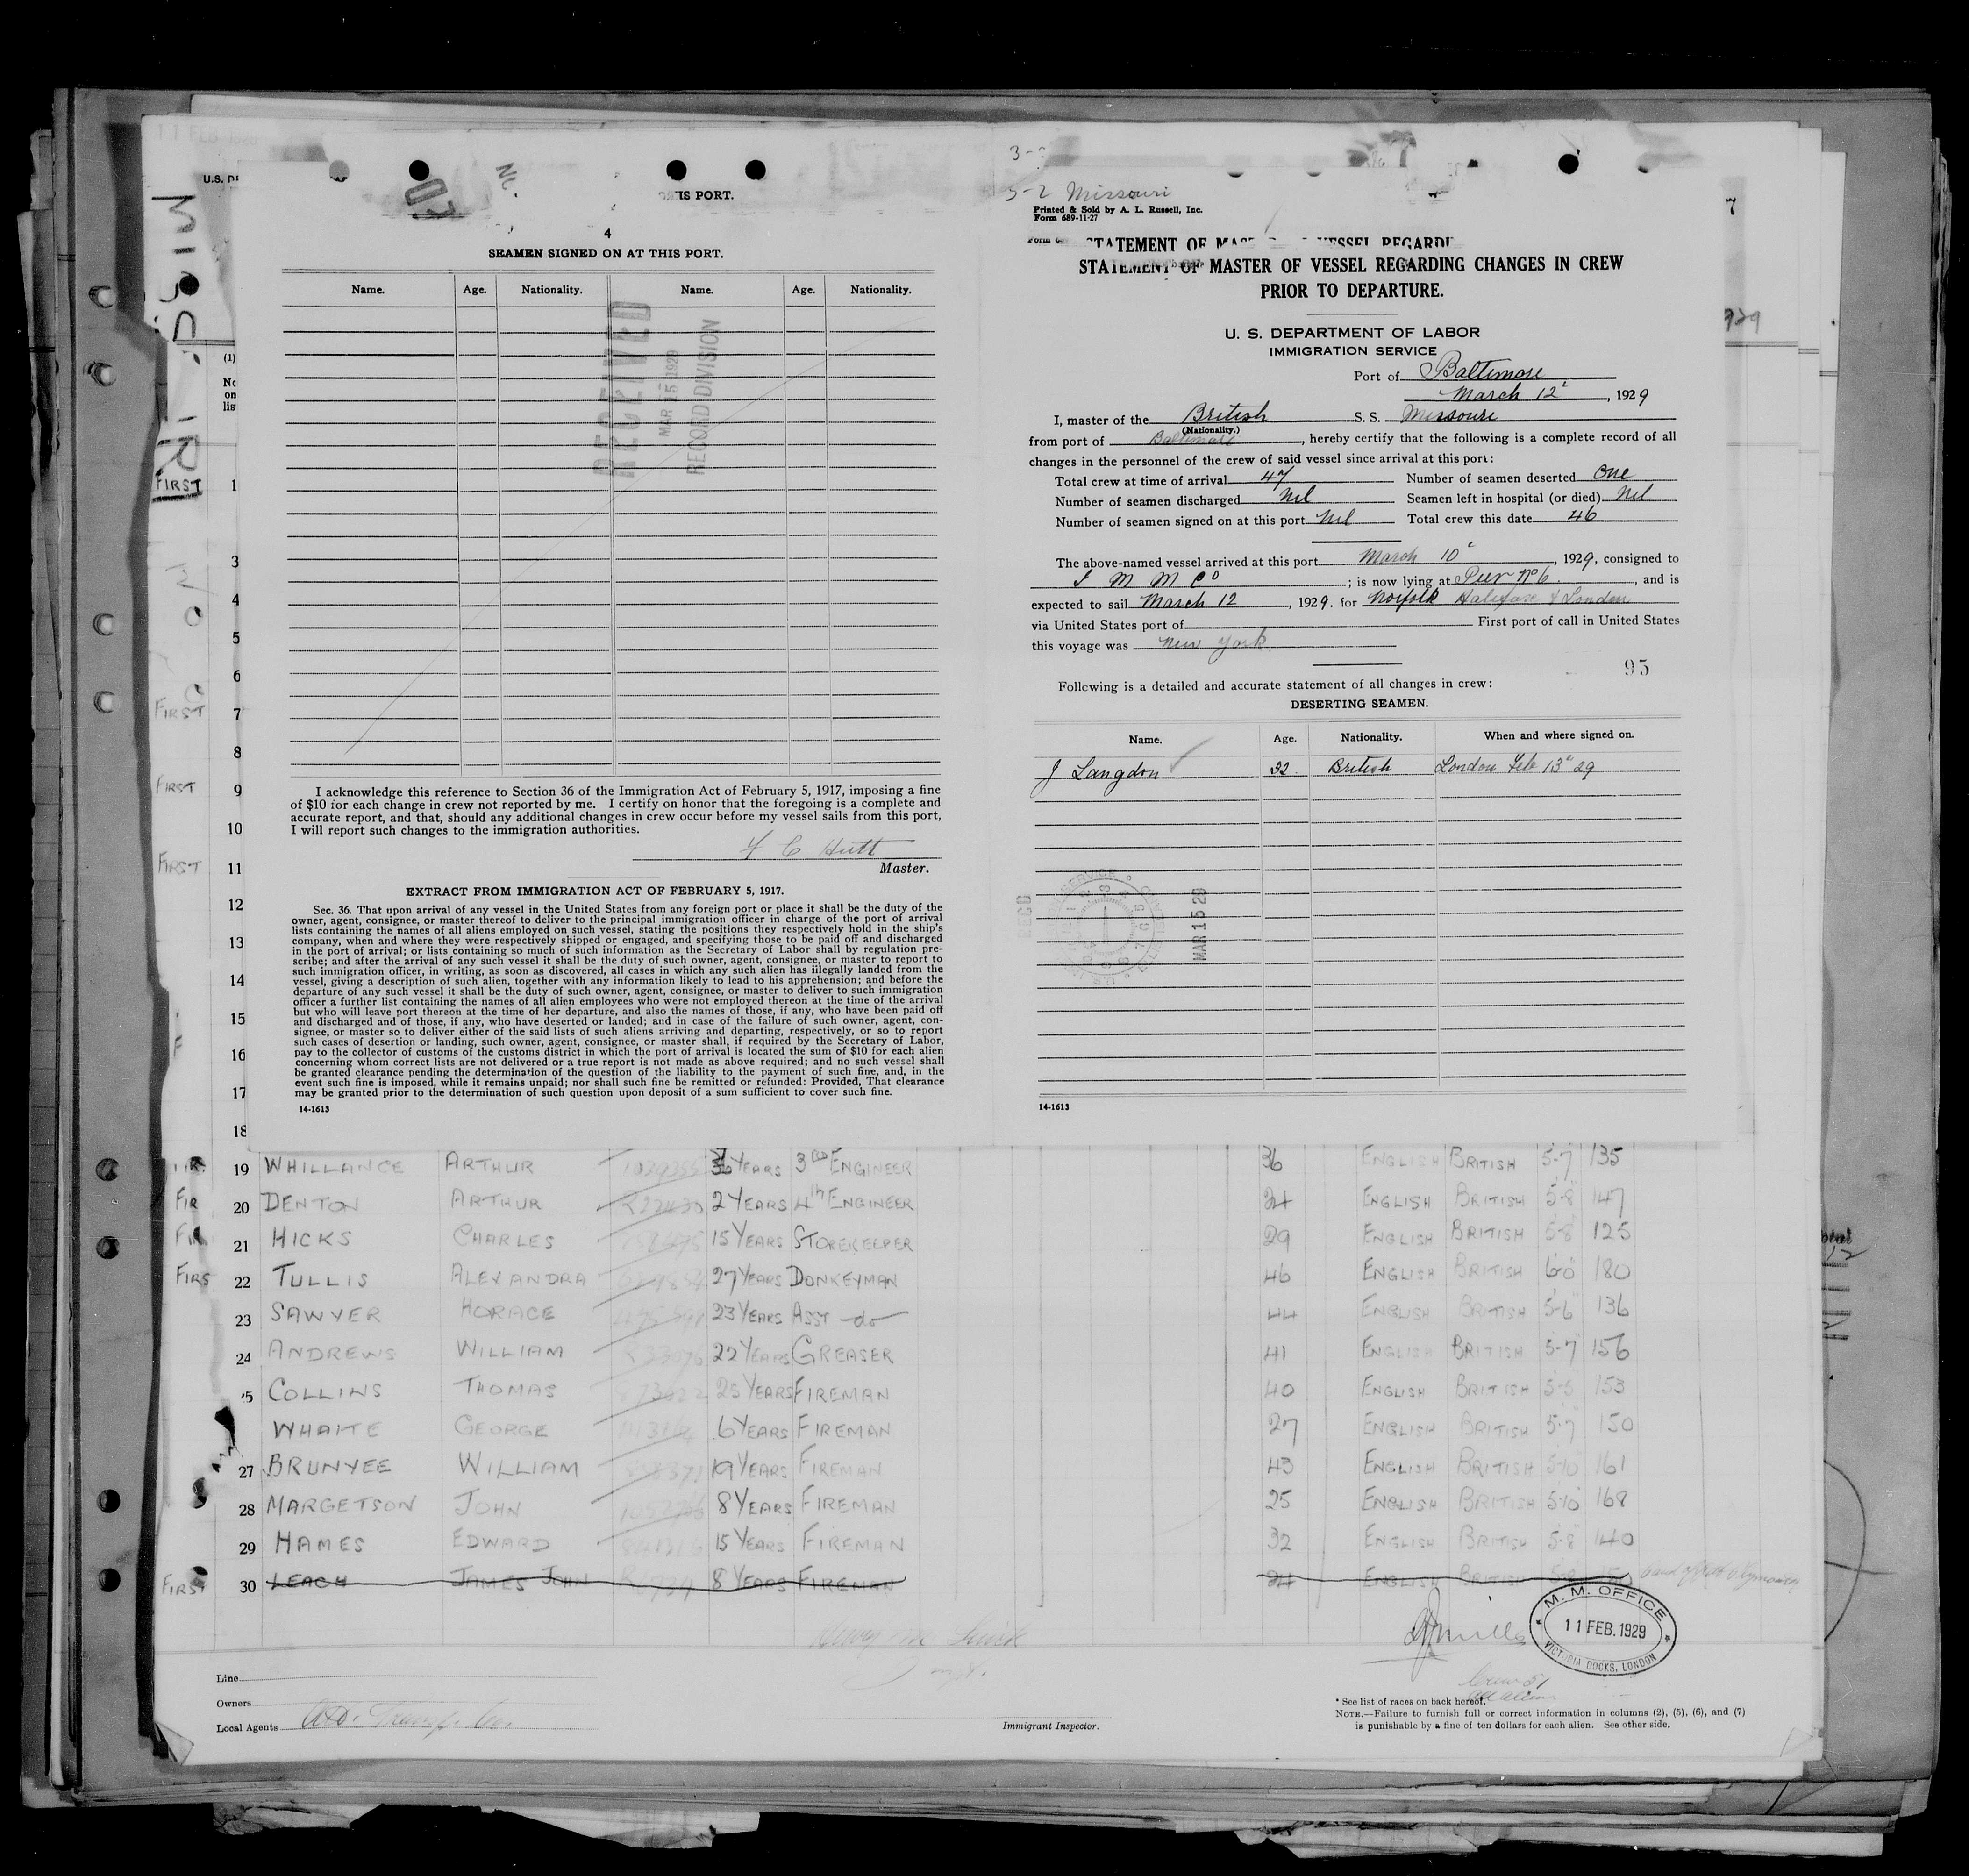 11 FEB 1929
U.S. DE
IS PORT.
4
SEAMEN SIGNED ON AT THIS PORT.
Name. Age. Nationality. Name. Age. Nationality.
RECEIVED
MAR 15 1929
RECORD DIVISION
I acknowledge this reference to Section 36 of the Immigration Act of February 5, 1917, imposing a fine
of $10 for each change in crew not reported by me. I certify on honor that the foregoing is a complete and
accurate report, and that, should any additional changes in crew occur before my vessel sails from this port,
I will report such changes to the immigration authorities.
Hutt
Master.
EXTRACT FROM IMMIGRATION ACT OF FEBRUARY 5, 1917.
Sec. 36. That upon arrival of any vessel in the United States from any foreign port or place it shall be the duty of the
owner, agent, consignee, or master thereof to deliver to the principal immigration officer in charge of the port of arrival
lists containing the names of all aliens employed on such vessel, stating the positions they respectively hold in the ship's
company, when and where they were respectively shipped or engaged, and specifying those to be paid off and discharged
in the port of arrival; or lists containing so much of such information as the Secretary of Labor shall by regulation pre-
scribe; and after the arrival of any such vessel it shall be the duty of such owner, agent, consignee, or master to report to
such immigration officer, in writing, as soon as discovered, all cases in which any such alien has illegally landed from the
vessel, giving a description of such alien, together with any information likely to lead to his apprehension; and before the
departure of any such vessel it shall be the duty of such owner, agent, consignee, or master to deliver to such immigration
officer a further list containing the names of all alien employees who were not employed thereon at the time of the arrival
but who will leave port thereon at the time of her departure, and also the names of those, if any, who have been paid off
and discharged and of those, if any, who have deserted or landed; and in case of the failure of such owner, agent, con-
signee, or master so to deliver either of the said lists of such aliens arriving and departing, respectively, or so to report
such cases of desertion or landing, such owner, agent, consignee, or master shall, if required by the Secretary of Labor,
pay to the collector of customs of the customs district in which the port of arrival is located the sum of $10 for each alien
concerning whom correct lists are not delivered or a true report is not made as above required; and no such vessel shall
be granted clearance pending the determination of the question of the liability to the payment of such fine, and, in the
event such fine is imposed, while it remains unpaid; nor shall such fine be remitted or refunded: Provided, That clearance
may be granted prior to the determination of such question upon deposit of a sum sufficient to cover such fine.
14-1613
Missouri
Printed & Sold by A. L. Russell, Inc.
Form 689-11-27
STATEMENT OF MASTER OF VESSEL REGARDING CHANGES IN CREW
PRIOR TO DEPARTURE.
U. S. DEPARTMENT OF LABOR
IMMIGRATION SERVICE
Port of Baltimore
March 12, 1929
I, master of the British S. S. Missouri
(Nationality.)
from port of Baltimore, hereby certify that the following is a complete record of all
changes in the personnel of the crew of said vessel since arrival at this port:
Total crew at time of arrival 47 Number of seamen deserted One
Number of seamen discharged Nil Seamen left in hospital (or died) Nil
Number of seamen signed on at this port Nil Total crew this date 46
The above-named vessel arrived at this port March 10, 1929, consigned to
I M M Co; is now lying at Pier No 6, and is
expected to sail March 12, 1929. for Norfolk Halifax & London
via United States port of First port of call in United States
this voyage was New York
95
Following is a detailed and accurate statement of all changes in crew:
DESERTING SEAMEN.
Name. Age. Nationality. When and where signed on.
J Langdon 32 British London Feb 13 29
MAR 15 29
14-1613
FIRST 1
3
4
5
6
FIRST 7
8
FIRST 9
10
FIRST 11
12
13
14
15
16
17
18
19 WHILLANCE ARTHUR YEARS 3RD ENGINEER 36 ENGLISH BRITISH 5-7 135
20 DENTON ARTHUR 2 YEARS 4th ENGINEER 24 ENGLISH BRITISH 5-8 147
21 HICKS CHARLES 15 YEARS STOREKEEPER 29 ENGLISH BRITISH 5-8 125
FIRS 22 TULLIS ALEXANDRA 27 YEARS DONKEYMAN 46 ENGLISH BRITISH 6-0 180
23 SAWYER HORACE 23 YEARS ASST do 44 ENGLISH BRITISH 5-6 136
24 ANDREWS WILLIAM 22 YEARS GREASER 41 ENGLISH BRITISH 5-7 156
5 COLLINS THOMAS 25 YEARS FIREMAN 40 ENGLISH BRITISH 5-5 153
WHAITE GEORGE 6 YEARS FIREMAN 27 ENGLISH BRITISH 5-7 150
27 BRUNYEE WILLIAM 19 YEARS FIREMAN 43 ENGLISH BRITISH 5-10 161
28 MARGETSON JOHN 8 YEARS FIREMAN 25 ENGLISH BRITISH 5-10 168
29 HAMES EDWARD 15 YEARS FIREMAN 32 ENGLISH BRITISH 5-8 140
FIRST 30 LEACH JAMES JOHN 8 YEARS FIREMAN 24 ENGLISH BRITISH
M. M. OFFICE
11 FEB. 1929
VICTORIA DOCKS, LONDON
Line
Owners
Local Agents
Immigrant Inspector.
* See list of races on back hereof.
NOTE.—Failure to furnish full or correct information in columns (2), (5), (6), and (7)
is punishable by a fine of ten dollars for each alien. See other side.